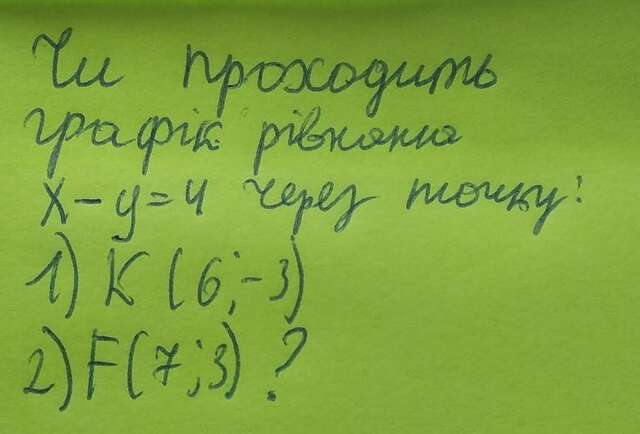 Чи проходить
графік рівняння
x-y=4 через точку:
1) K (6;-3)
2) F(7;3)?